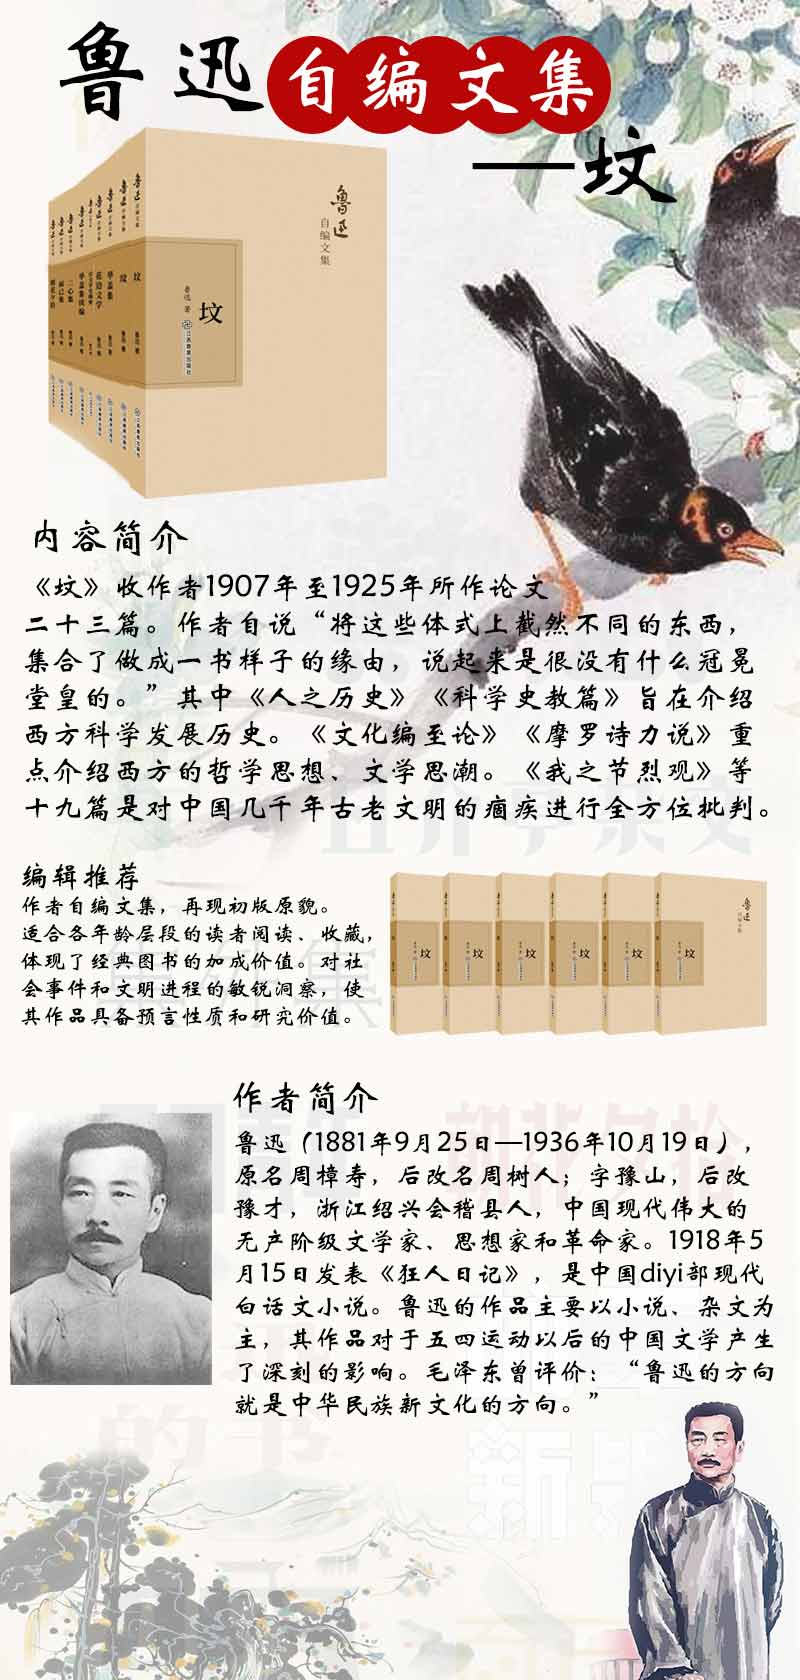 鲁迅自编文集
——坟
鲁迅
自编文集
鲁迅 著
坟
江苏教育出版社
内容简介
《坟》收作者1907年至1925年所作论文
二十三篇。作者自说“将这些体式上截然不同的东西，
集合了做成一书样子的缘由，说起来是很没有什么冠冕
堂皇的。”其中《人之历史》《科学史教篇》旨在介绍
西方科学发展历史。《文化编至论》《摩罗诗力说》重
点介绍西方的哲学思想、文学思潮。《我之节烈观》等
十九篇是对中国几千年古老文明的痼疾进行全方位批判。
编辑推荐
作者自编文集，再现初版原貌。
适合各年龄层段的读者阅读、收藏，
体现了经典图书的加成价值。对社
会事件和文明进程的敏锐洞察，使
其作品具备预言性质和研究价值。
作者简介
鲁迅（1881年9月25日—1936年10月19日），
原名周樟寿，后改名周树人；字豫山，后改
豫才，浙江绍兴会稽县人，中国现代伟大的
无产阶级文学家、思想家和革命家。1918年5
月15日发表《狂人日记》，是中国diyi部现代
白话文小说。鲁迅的作品主要以小说、杂文为
主，其作品对于五四运动以后的中国文学产生
了深刻的影响。毛泽东曾评价：“鲁迅的方向
就是中华民族新文化的方向。”